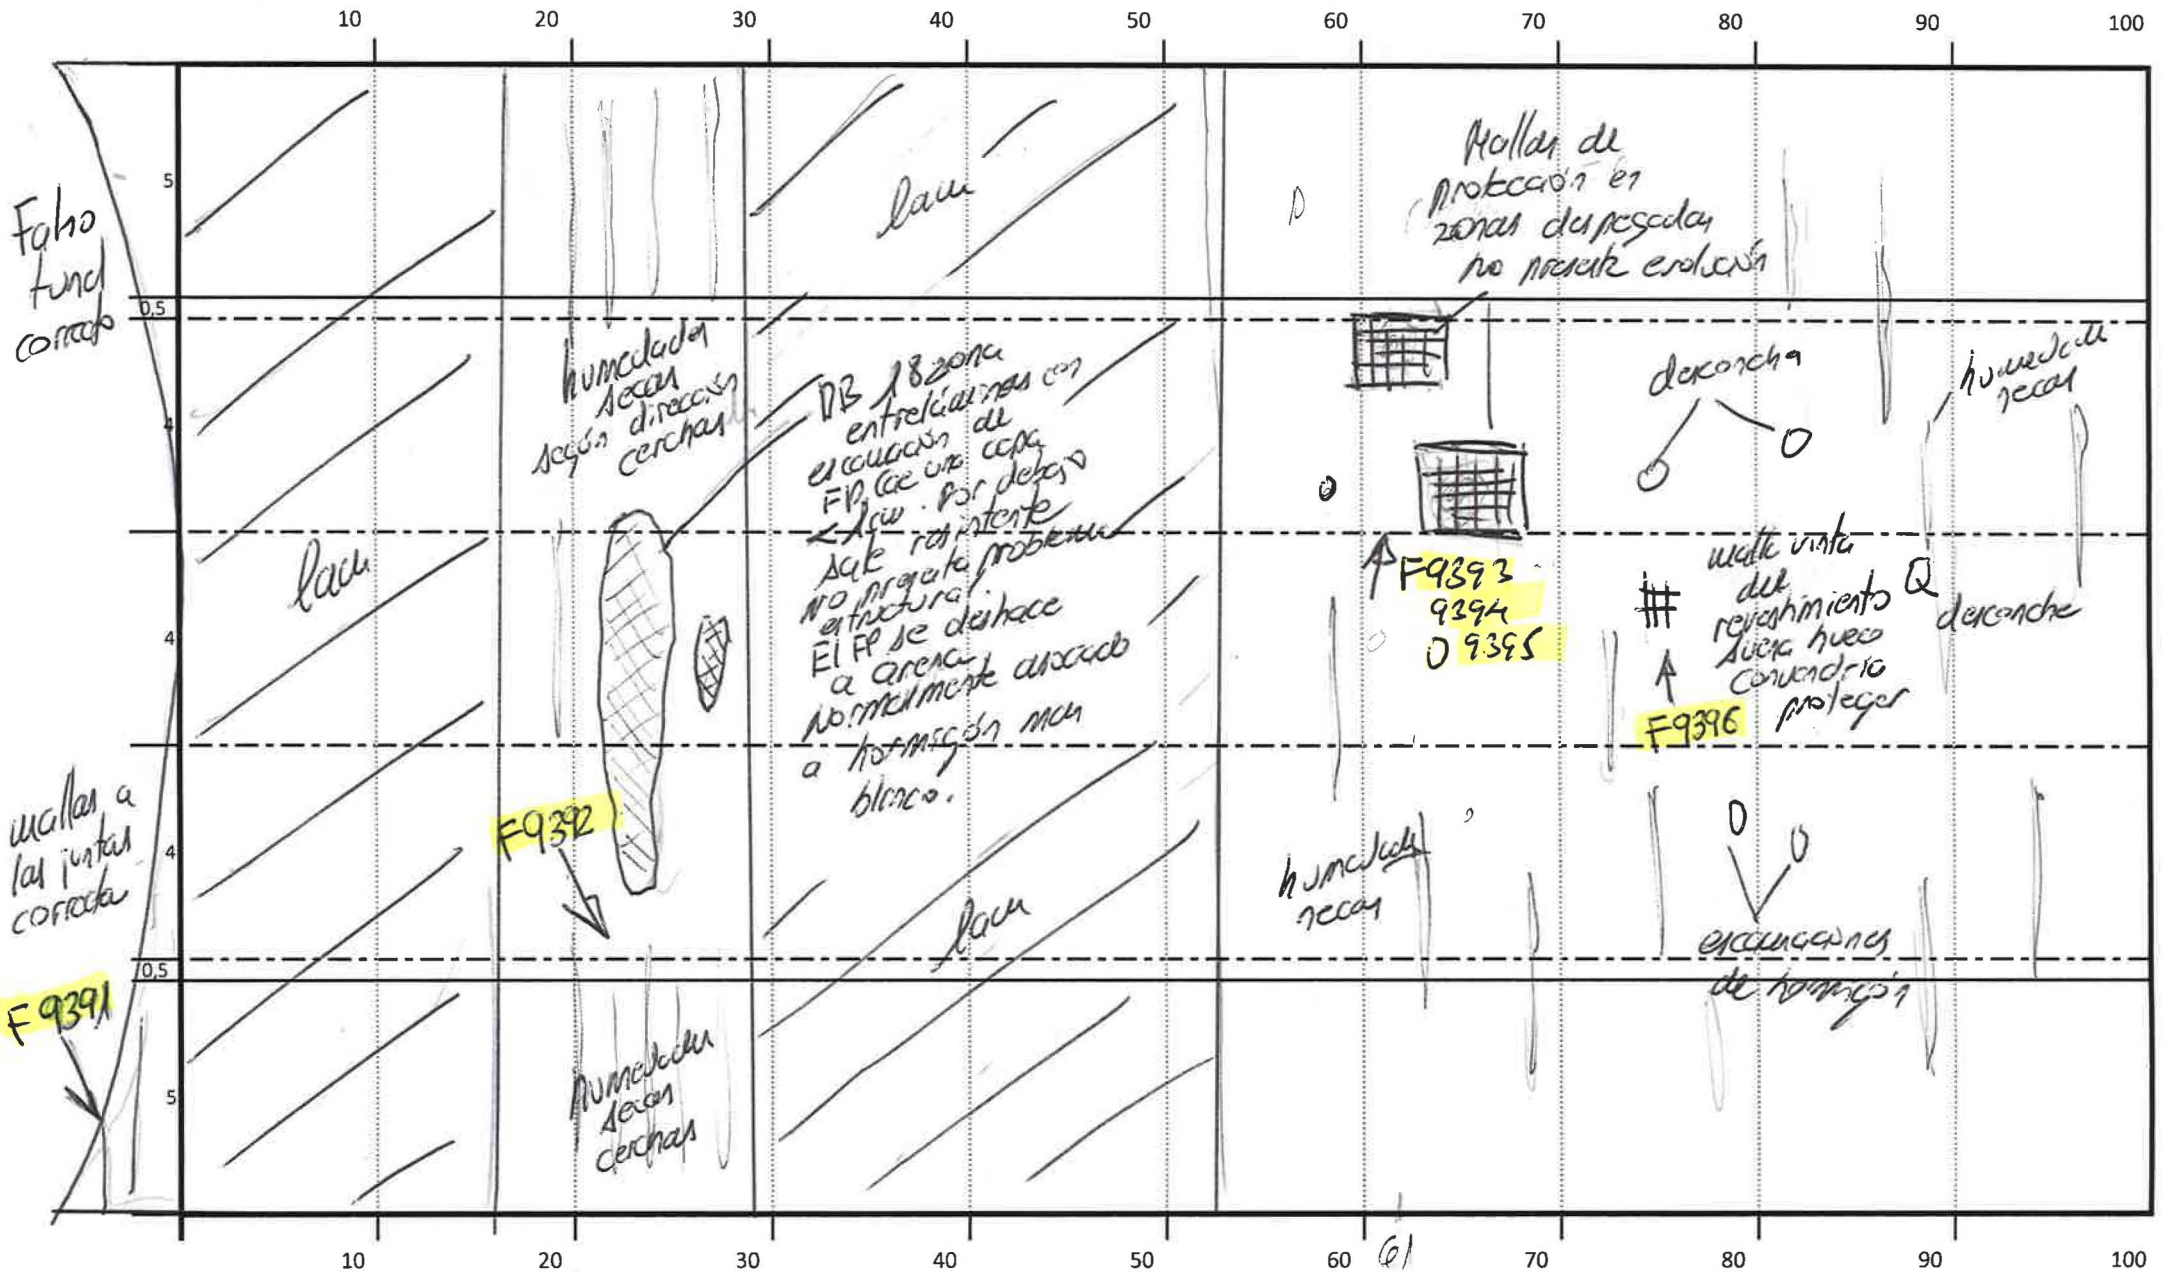 10 20 30 40 50 60 70 80 90 100
Falso
tunel
corrado
5
0,5
4
4
4
0,5
5
mallas a
las juntas
corrada
F 9391
lam
humedades
secas
según dirección
cerchas
F9392
humedades
secas
cerchas
lam
DB 18 zona
entreláminas en
escamación de
FP. Cae una capa
< 1cm. Por debajo
sale resistente
No presenta problema
estructural.
El FP se deshace
a arena
Normalmente asociado
a hormigón mas
blanco.
lam
Mallas de
protección en
zonas despegadas
no presenta evolución
F9393
9394
9395
desconcha
humedades
secas
malla vista
del
revestimiento
suena hueco
convendria
proteger
F9396
desconche
humedades
secas
escamaciones
de hormigón
10 20 30 40 50 60 61 70 80 90 100